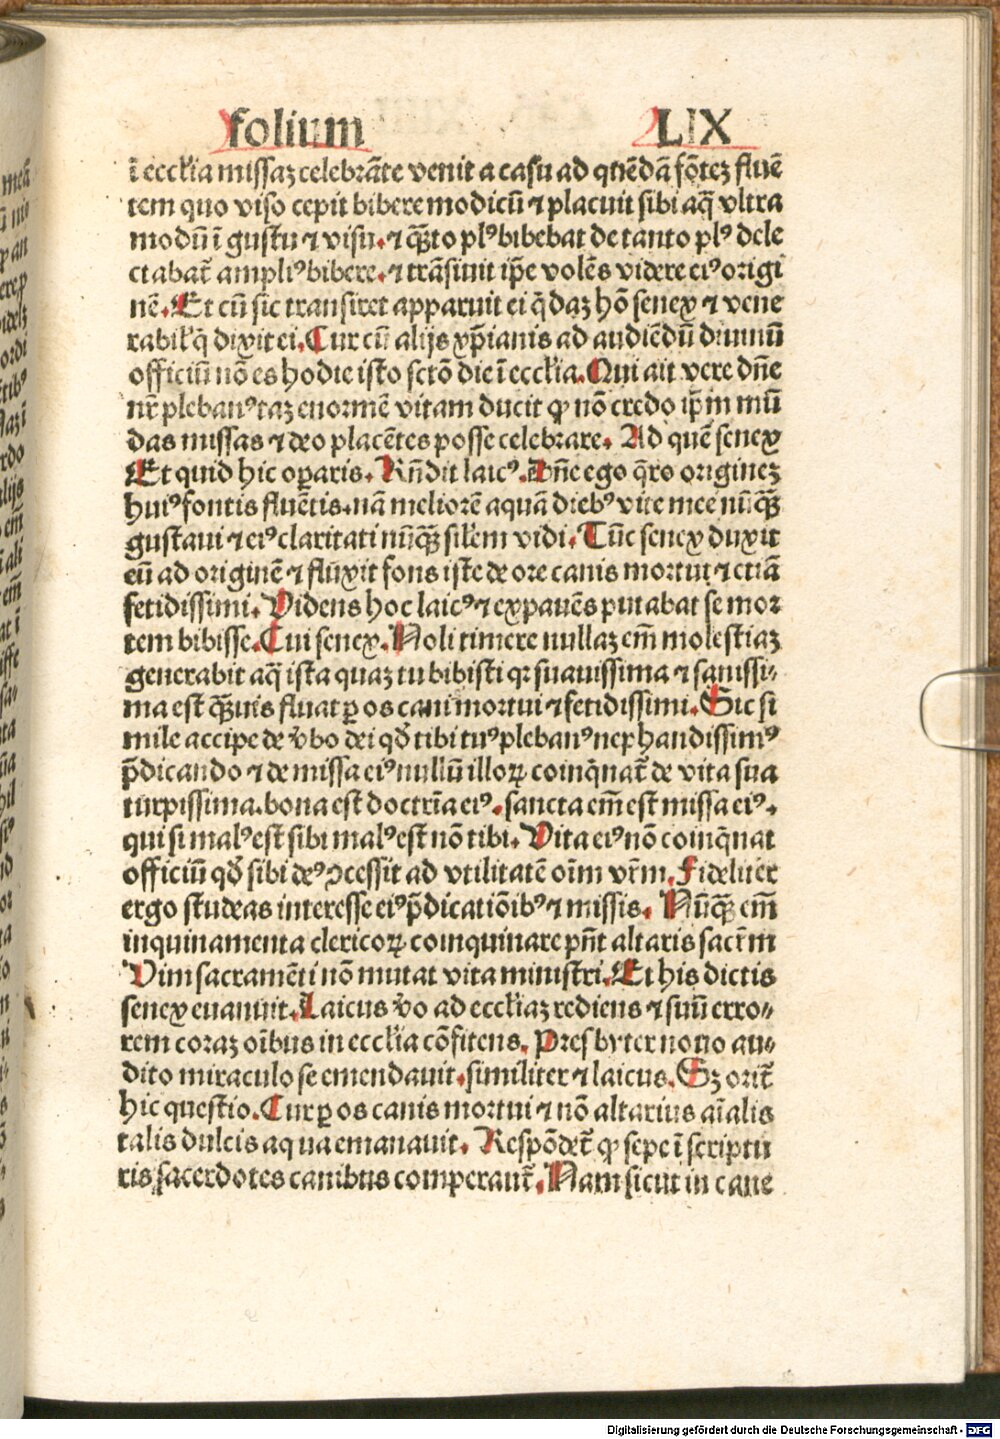 folium LIX
ī eccłia missaꝫ celebrāte venit a casu ad qñedā fōteꝫ fluē
tem quo viso cepit bibere modicū ⁊ placuit sibi aq̄ vltra
modū ī gustu ⁊ visu. ⁊ qꝫto plꝰ bibebat de tanto plꝰ dele
ctabat̄ ampliꝰ bibere. ⁊ trāsiuit ip̄e volēs videre eiꝰ origi
nē. Et cū sic transiret apparuit ei q̄daꝫ hō senex ⁊ vene
rabił q̄ dixit ei. Cur cū alijs xp̄ianis ad audiēdū diuinū
officiū nō es hodie isto sctō die ī eccłia. Qui ait vere dn̄e
nr̄ plebanꝰ taꝫ enormē vitam ducit ꝙ nō credo ip̄m mū
das missas ⁊ deo placētes posse celebrare. Ad quē senex
Et quid hic operaris. Rn̄dit laicꝰ. Dn̄e ego q̄ro origineꝫ
huiꝰ fontis fluētis. nā meliorē aquā diebꝰ vite mee nūqꝫ
gustaui ⁊ eiꝰ claritati nūqꝫ silem vidi. Tūc senex duxit
eū ad originē ⁊ fluxit fons iste de ore canis mortui ⁊ etiā
fetidissimi. Videns hoc laicꝰ ⁊ expauēs putabat se mor
tem bibisse. Cui senex. Noli timere nullaꝫ em̄ molestiaꝫ
generabit aq̄ ista quaꝫ tu bibisti qꝛ suauissima ⁊ sanissi⸗
ma est qꝫuis fluat ꝑ os cani mortui ⁊ fetidissimi. Sic si
mile accipe de v̄bo dei qđ tibi tuꝰ plebanꝰ nephandissimꝰ
p̄dicando ⁊ de missa eiꝰ nullū illoꝝ coinq̄nat̄ de vita sua
turpissima. bona est doctrīa eiꝰ. sancta em̄ est missa eiꝰ.
qui si malꝰ est sibi malꝰ est nō tibi. Vita eiꝰ nō coinq̄nat
officiū qđ sibi deꝰ ꝯcessit ad vtilitatē oīm vr̄m. Fideliter
ergo studeas interesse eiꝰ p̄dicatiōibꝰ ⁊ missis. Nūqꝫ em̄
inquinamenta clericoꝝ coinquinare pn̄t altaris sacr̄m
Vim sacramēti nō mutat vita ministri. Et his dictis
senex euanuit. Laicus v̄o ad eccłiaꝫ rediens ⁊ suū erro⸗
rem coraꝫ oībus in eccłia cōfitens. Presbyter nouo au⸗
dito miraculo se emendauit. similiter ⁊ laicus. Sꝫ orit̄
hic questio. Cur ꝑ os canis mortui ⁊ nō altarius aīalis
talis dulcis aqua emanauit. Respōdet̄ ꝙ sepe ī scriptu
ris sacerdotes canibus comperant̄. Nam sicut in cane
Digitalisierung gefördert durch die Deutsche Forschungsgemeinschaft - DFG